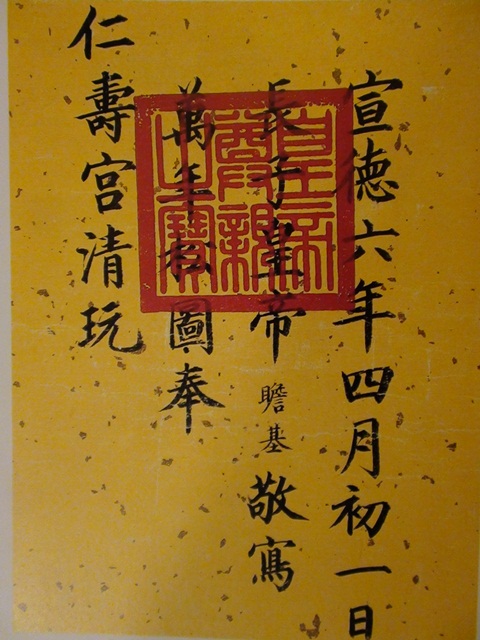 宣德六年四月初一日
長子皇帝瞻基敬寫
萬年松圖奉
仁壽宮清玩
皇帝
尊親
之寶